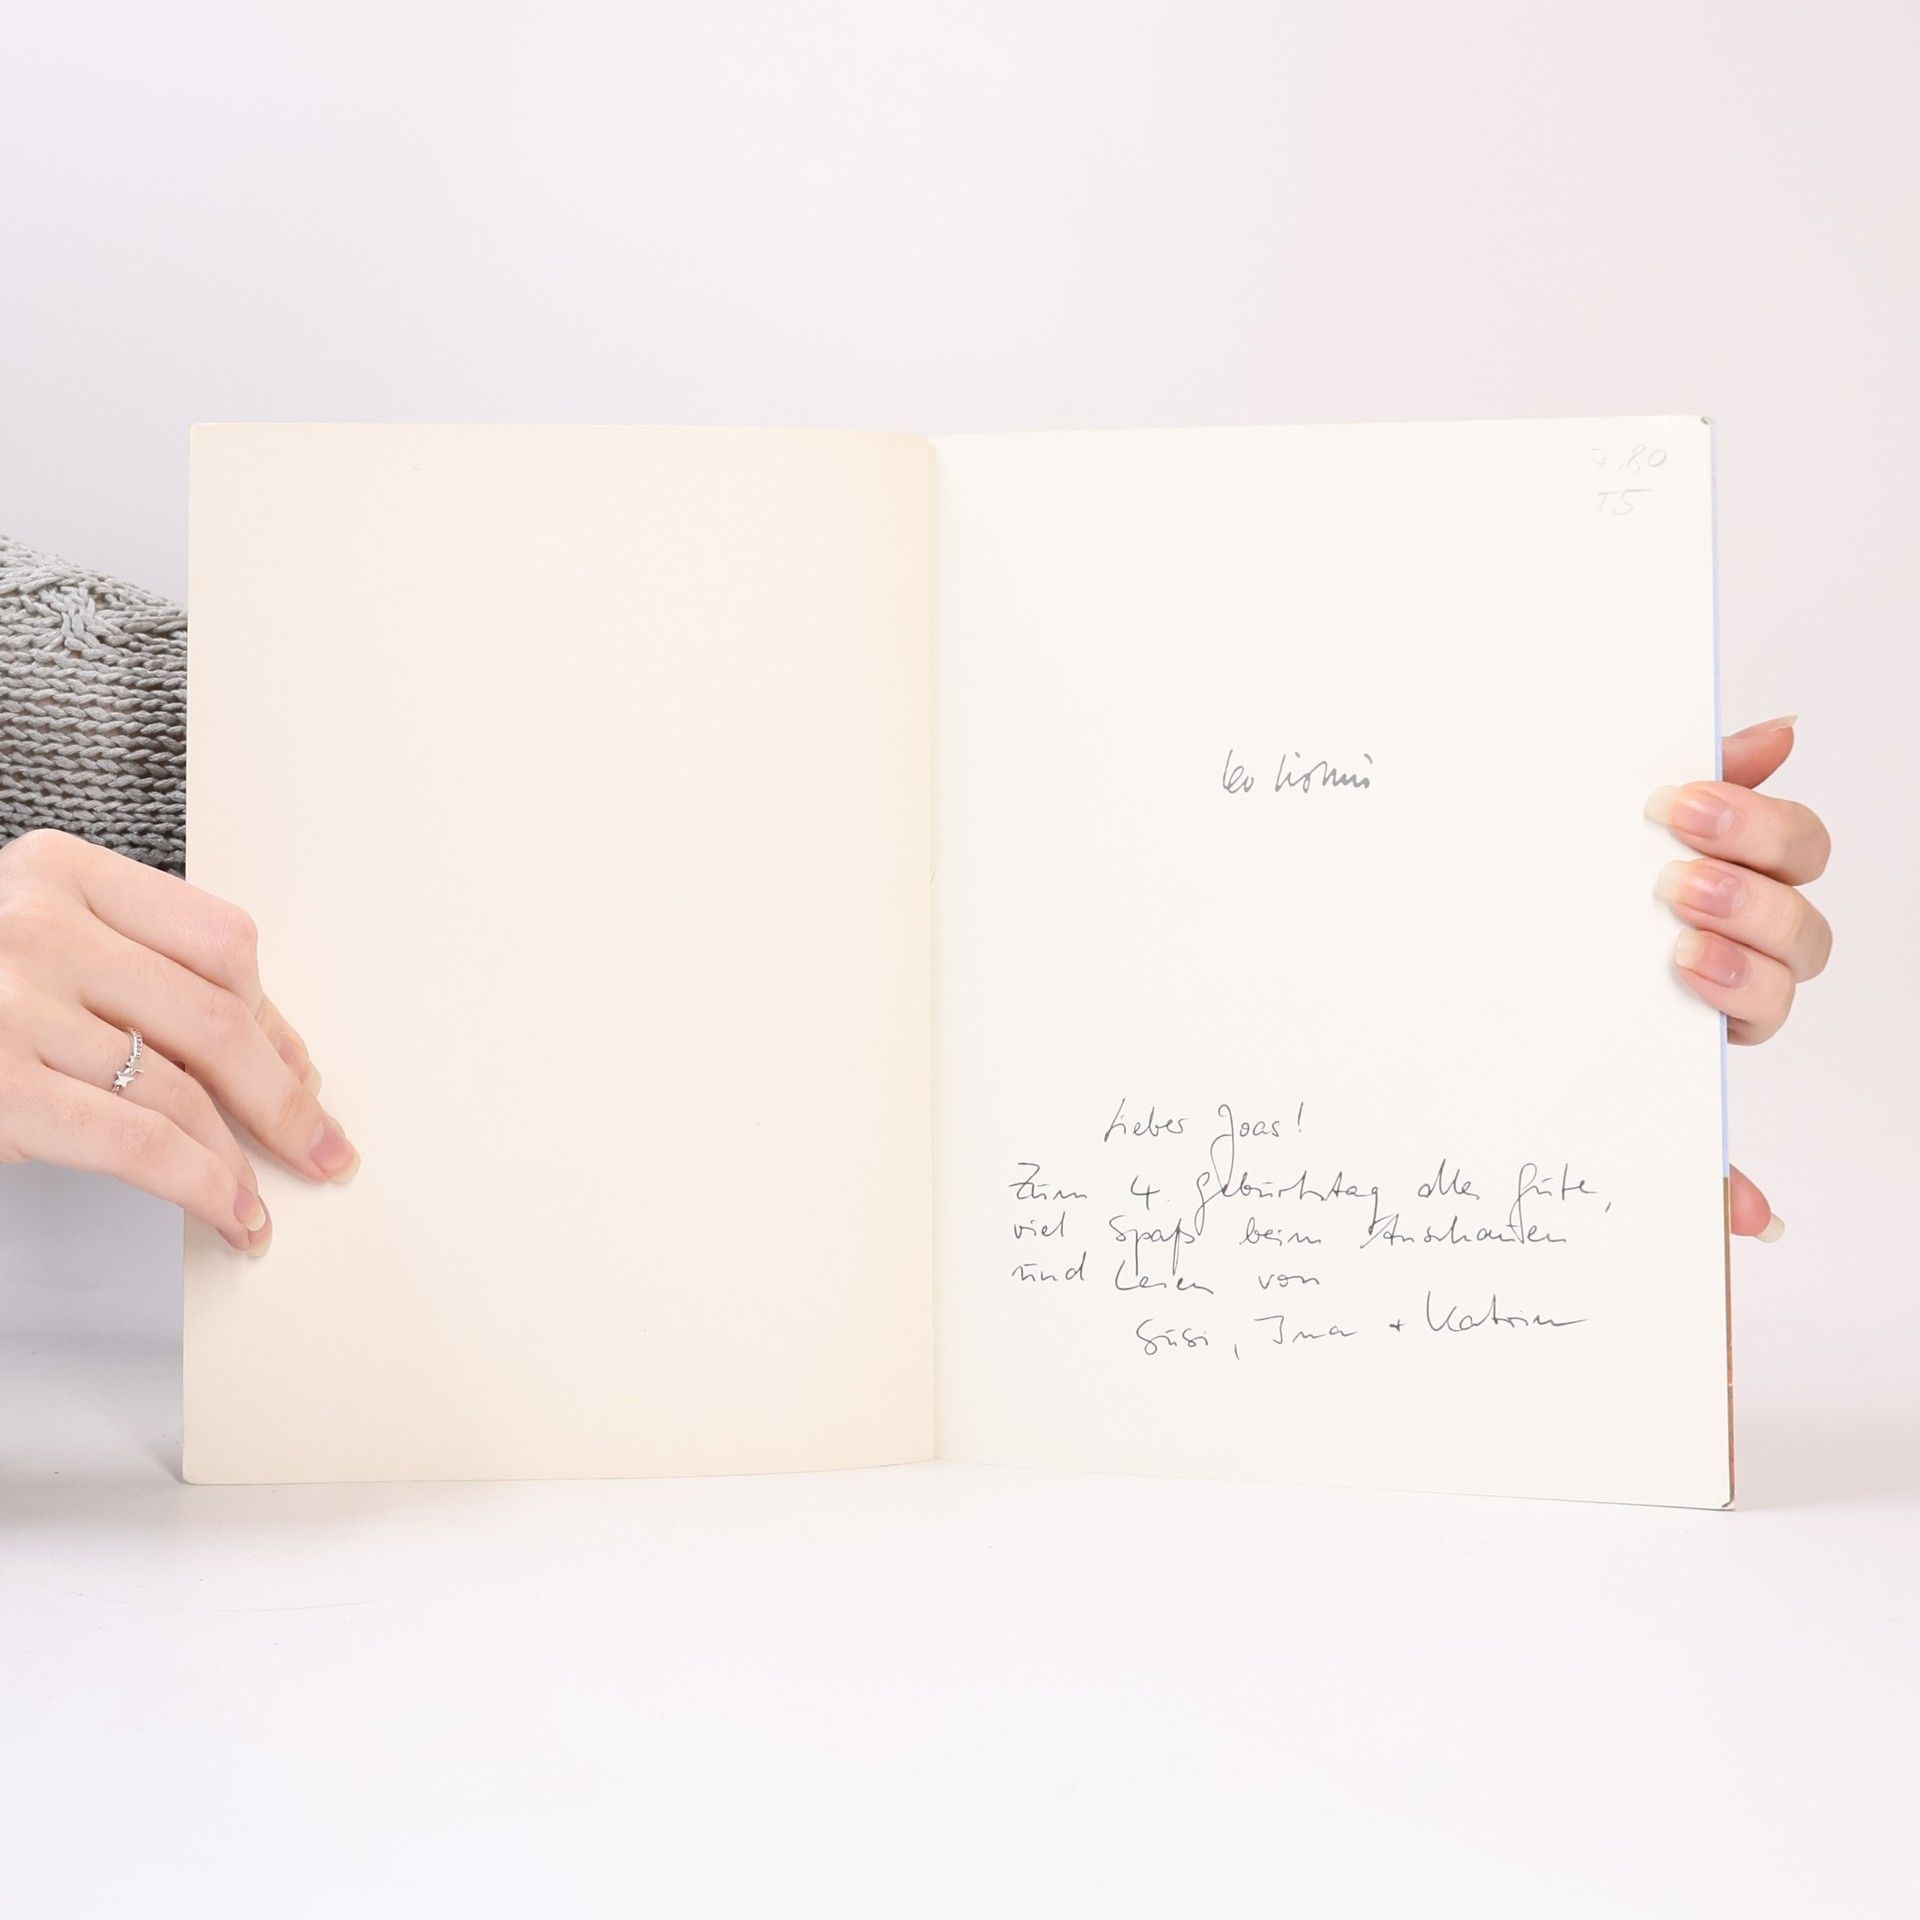 7,80
T5
leo lionni
Lieber Joas!
Zum 4. Geburtstag alles Gute,
viel Spaß beim Anschauen
und Lesen von
Susi, Ina + Katrin